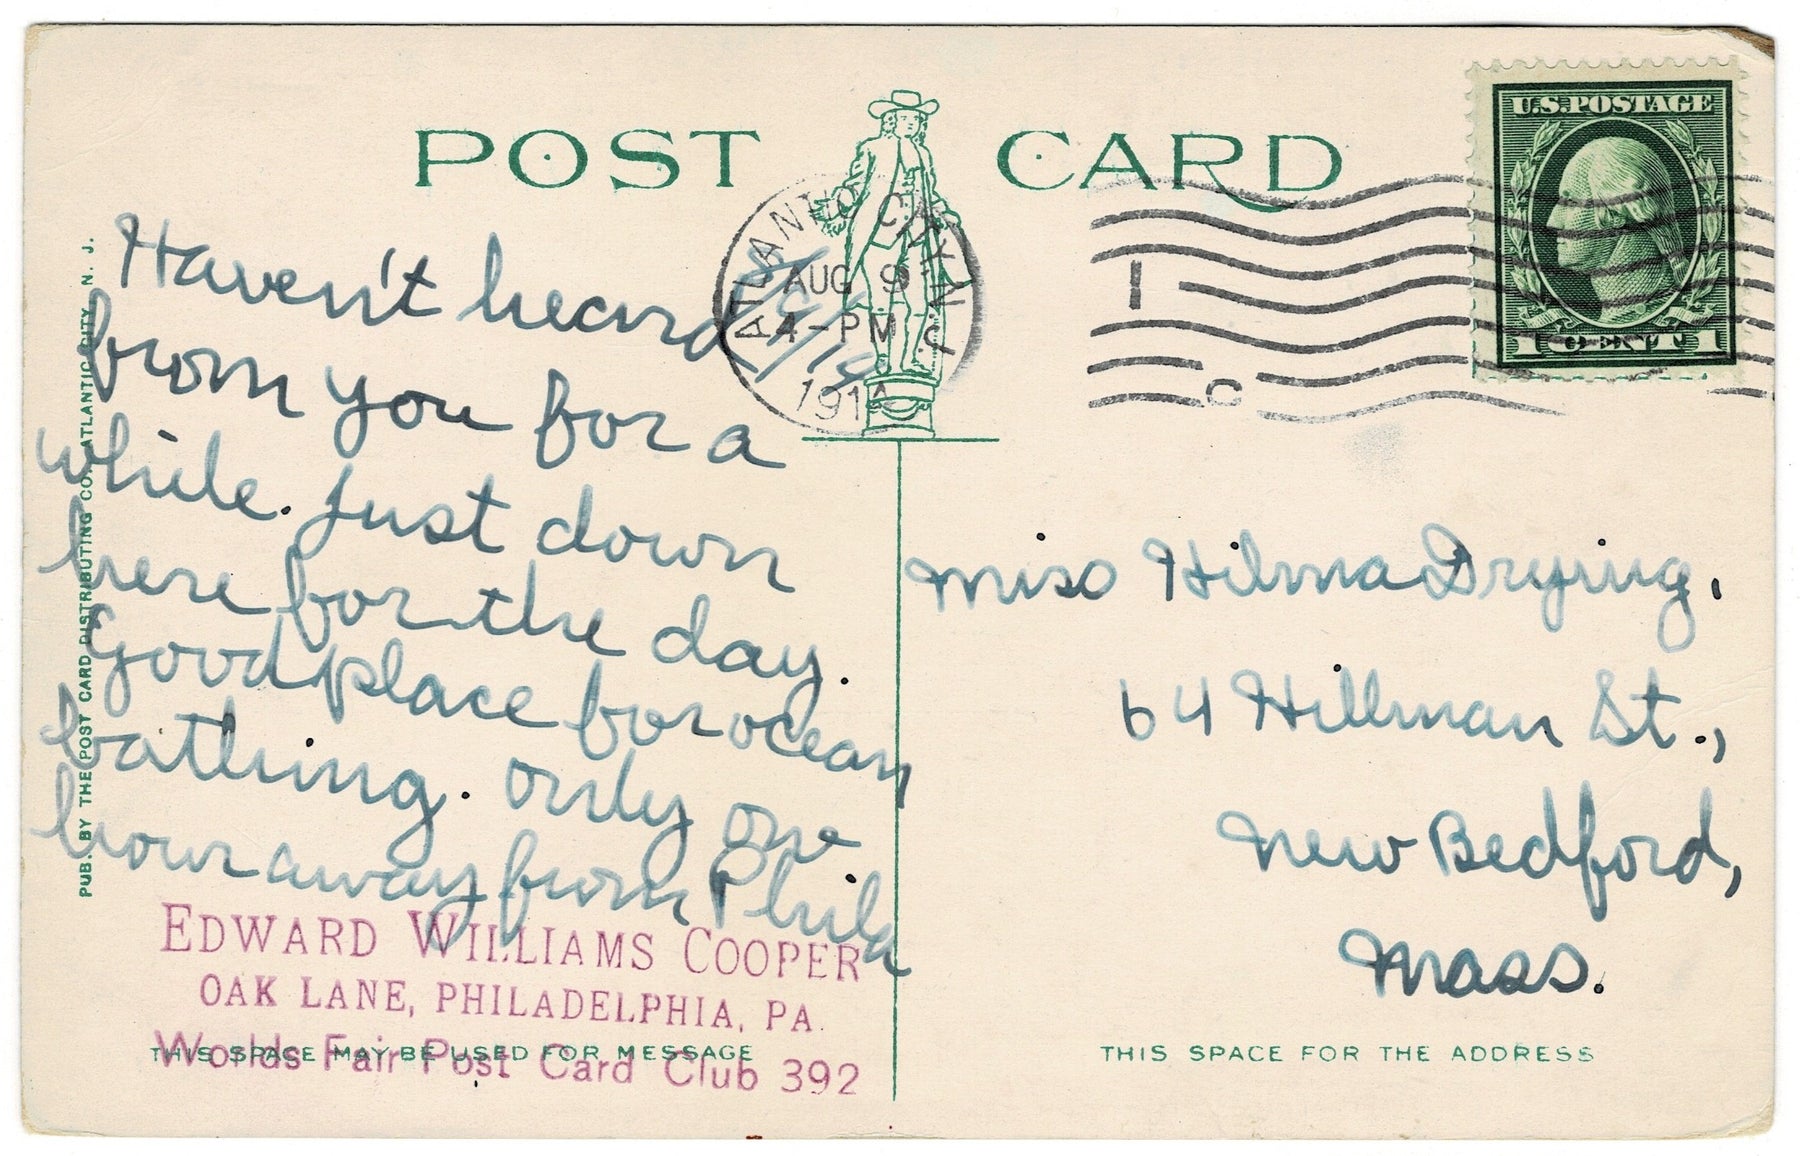 POST CARD
U.S.POSTAGE
1 CENT 1
ATLANTIC CITY, N.J.
AUG 9
4-PM
1914
1
C
PUB. BY THE POST CARD DISTRIBUTING CO. ATLANTIC CITY, N. J.
Haven't heard
from you for a
while. Just down
here for the day.
Good place for ocean
bathing. Only one
hour away from Phila
EDWARD WILLIAMS COOPER
OAK LANE, PHILADELPHIA, PA.
Worlds Fair Post Card Club 392
THIS SPACE MAY BE USED FOR MESSAGE
Miss Hilma Drying,
64 Hillman St.,
New Bedford,
Mass.
THIS SPACE FOR THE ADDRESS